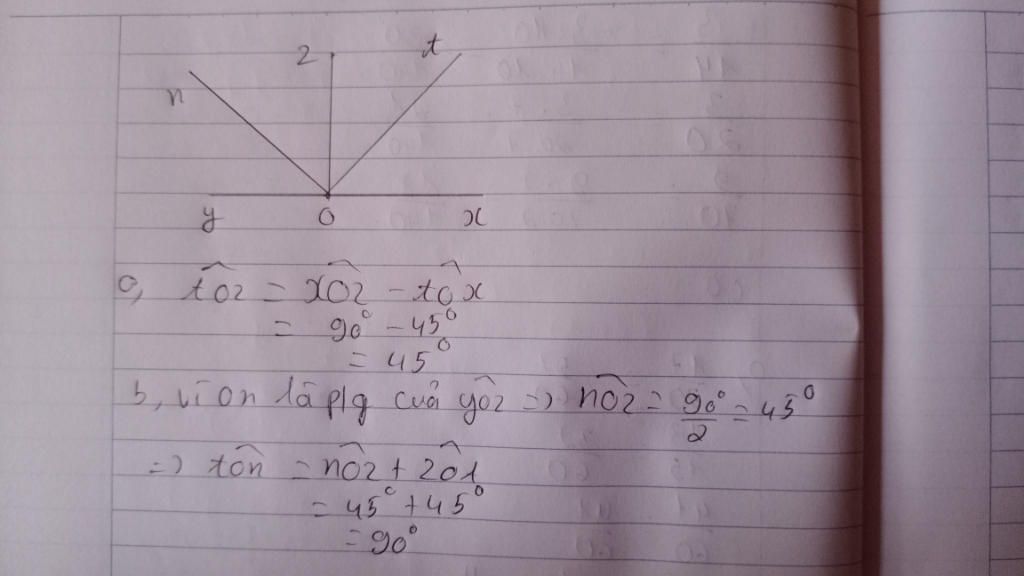 z t
n
y O x
a, tÔz = xÔz - tÔx
= 90° - 45°
= 45°
b, vì on là p/g của yÔz => nÔz = 90°/2 = 45°
=> tÔn = nÔz + zÔt
= 45° + 45°
= 90°